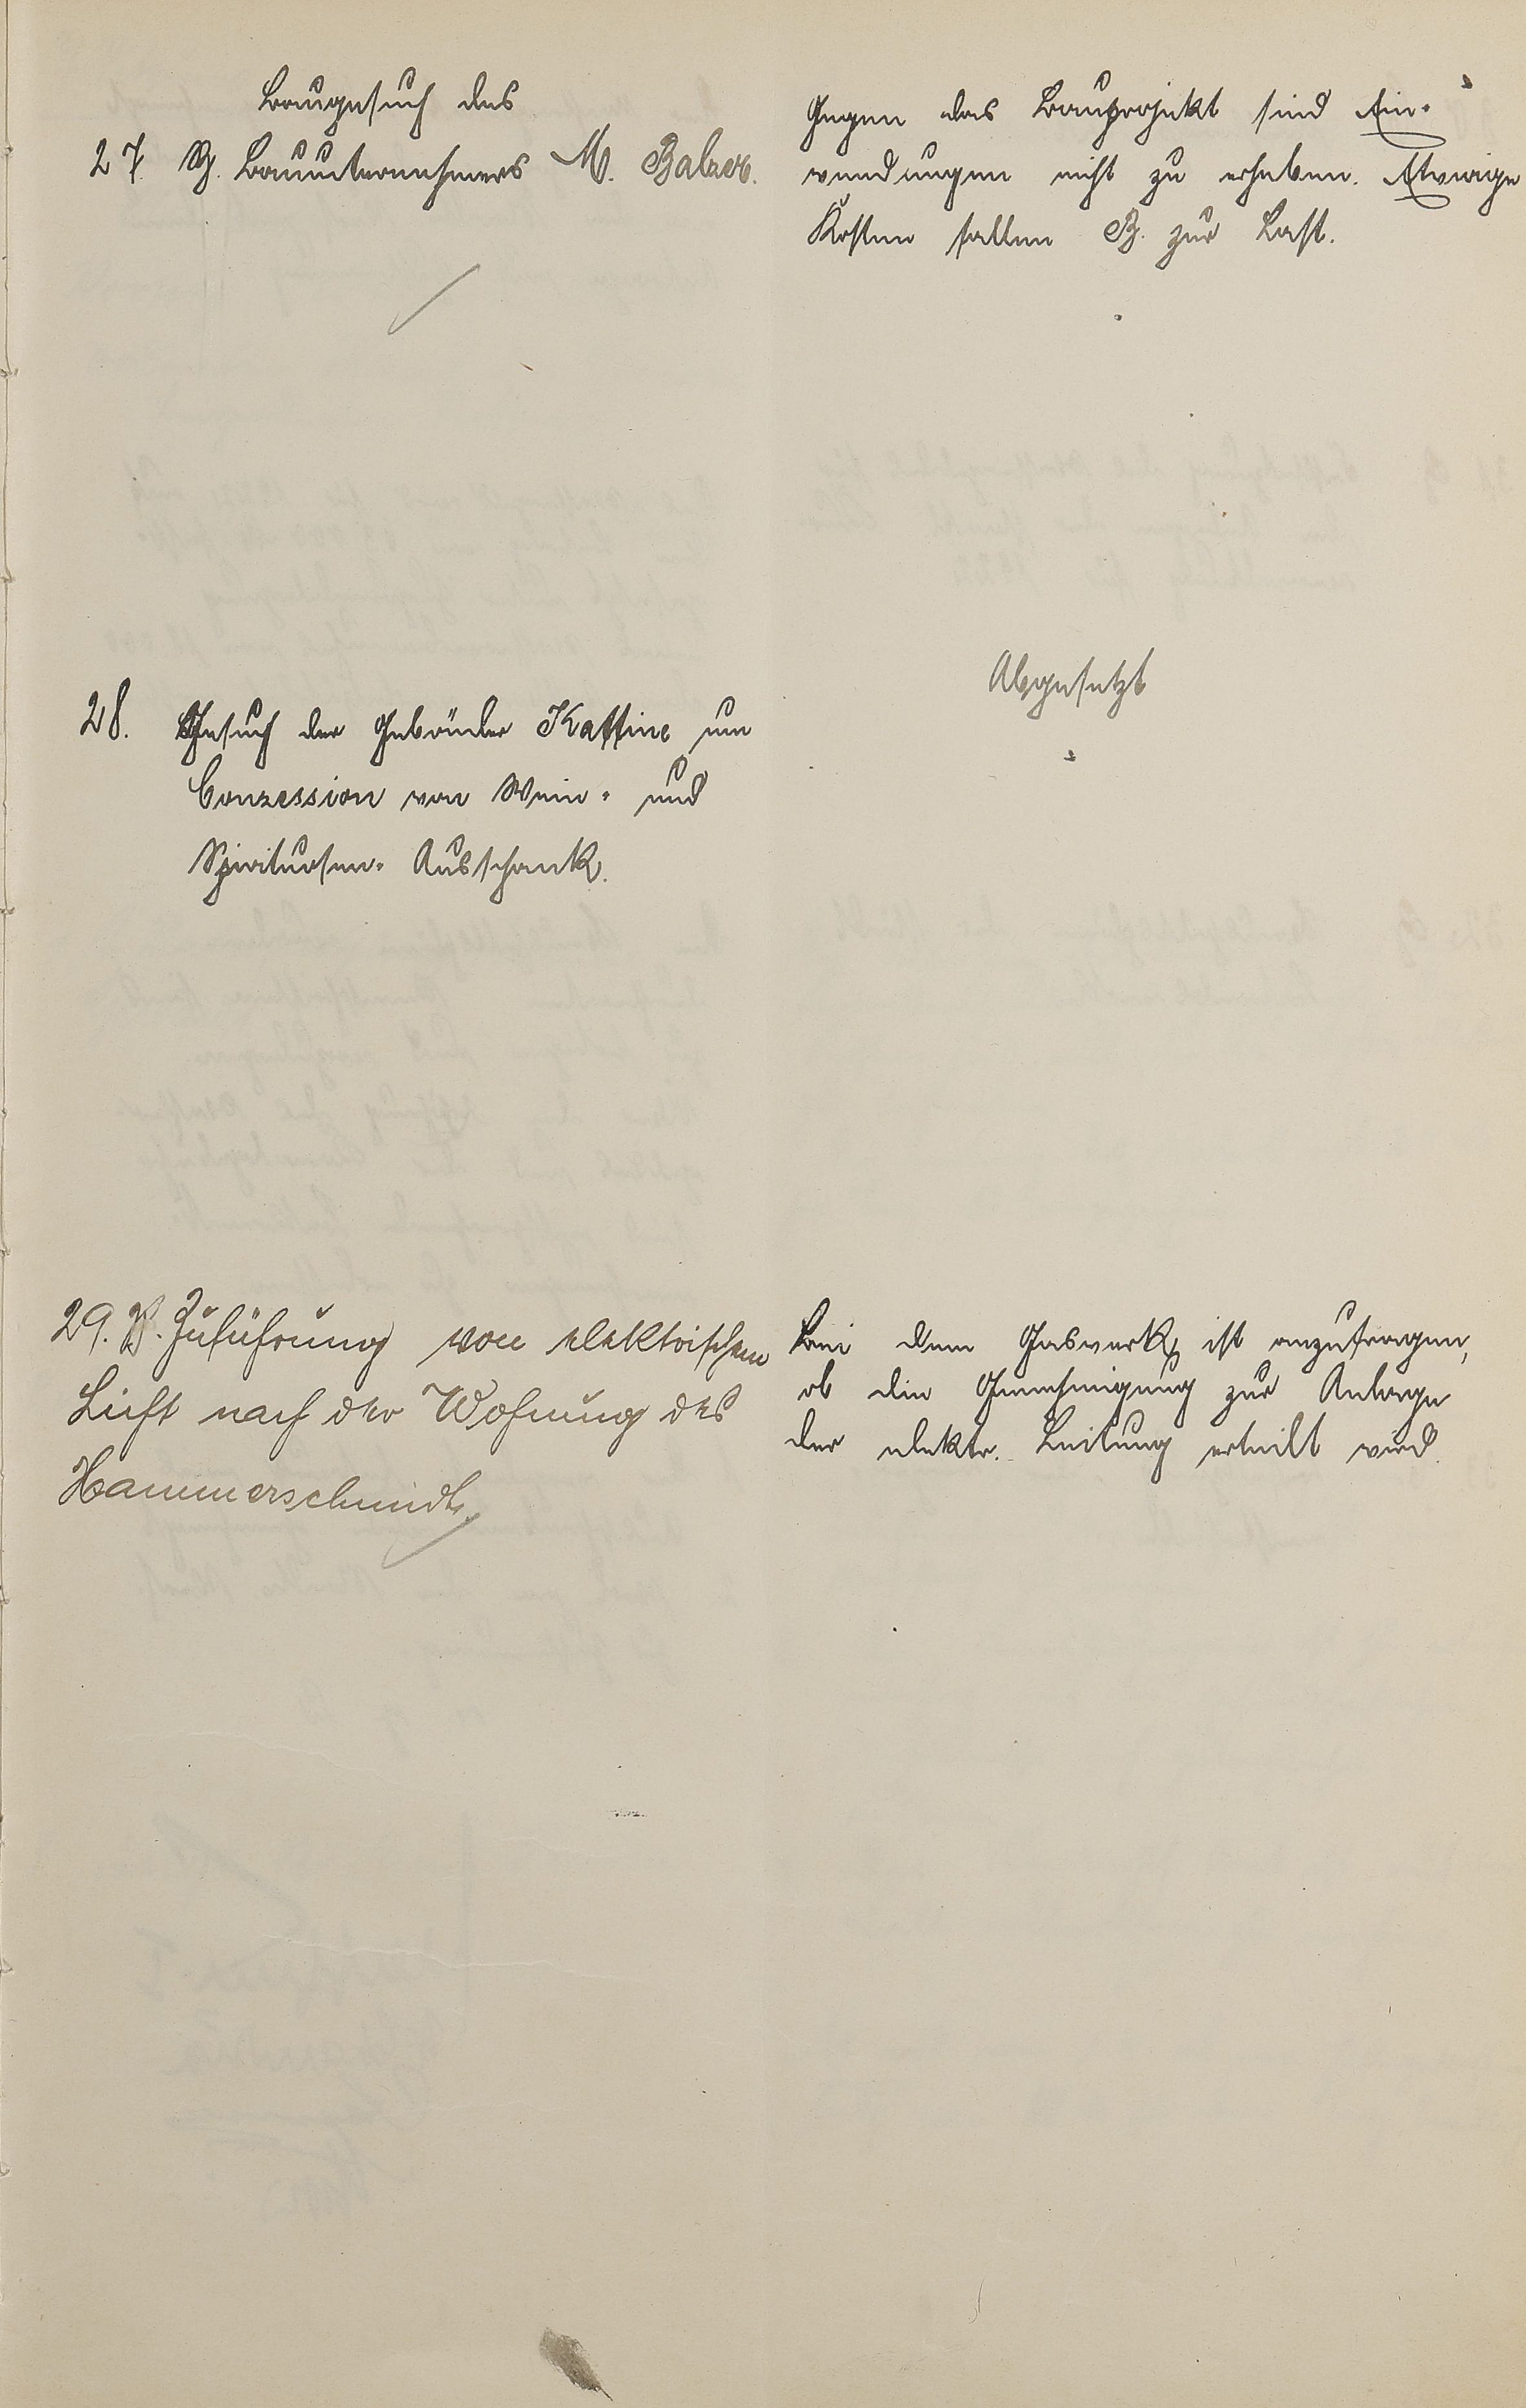 Baugesuch des
27. B. Bauunternehmers M. Balzer.
Gegen das Bauprojekt sind Ein-
wendungen nicht zu erheben. Etwaige
Kosten fallen B. zur Last.
28. Gesuch der Gebrüder Kattine um
Conzession von Wein- und
Spirituosen-Ausschank.
Abgesetzt
29. B. Zuführung von elektrischem
Licht nach der Wohnung des
Hammerschmidt.
Bei dem Gaswerk ist anzufragen,
ob die Genehmigung zur Anlage
der elektr. Leitung erteilt wird.